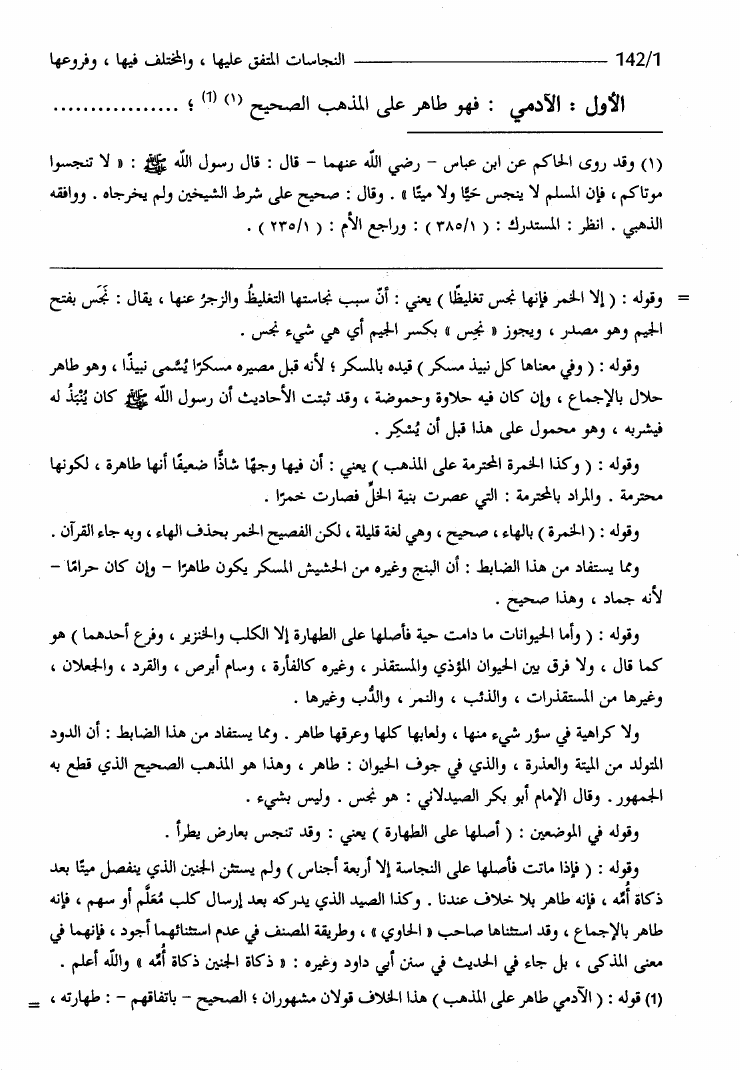 142/1 ـــــــــــــــــــــ النجاسات المتفق عليها ، والمختلف فيها ، وفروعها
الأول : الآدمي : فهو طاهر على المذهب الصحيح (١) (1) ؛ .................
(١) وقد روى الحاكم عن ابن عباس – رضي الله عنهما – قال : قال رسول الله ﷺ : « لا تنجسوا
موتاكم ، فإن المسلم لا ينجس حيًّا ولا ميتًا » . وقال : صحيح على شرط الشيخين ولم يخرجاه . ووافقه
الذهبي . انظر : المستدرك : ( ٣٨٥/١ ) : وراجع الأم : ( ٢٣٥/١ ) .
= وقوله : ( إلا الخمر فإنها نجس تغليظًا ) يعني : أنّ سبب نجاستها التغليظُ والزجرُ عنها ، يقال : نَجَس بفتح
الجيم وهو مصدر ، ويجوز « نجِس » بكسر الجيم أي هي شيء نجس .
وقوله : ( وفي معناها كل نبيذ مسكر ) قيده بالمسكر ؛ لأنه قبل مصيره مسكرًا يُسَمى نبيذًا ، وهو طاهر
حلال بالإجماع ، وإن كان فيه حلاوة وحموضة ، وقد ثبتت الأحاديث أن رسول الله ﷺ كان يُنْبَذُ له
فيشربه ، وهو محمول على هذا قبل أن يُسْكِر .
وقوله : ( وكذا الخمرة المحترمة على المذهب ) يعني : أن فيها وجهًا شاذًّا ضعيفًا أنها طاهرة ، لكونها
محترمة . والمراد بالمحترمة : التي عصرت بنية الخلِّ فصارت خمرًا .
وقوله : ( الخمرة ) بالهاء ، صحيح ، وهي لغة قليلة ، لكن الفصيح الخمر بحذف الهاء ، وبه جاء القرآن .
ومما يستفاد من هذا الضابط : أن البنج وغيره من الحشيش المسكر يكون طاهرا – وإن كان حرامًا –
لأنه جماد ، وهذا صحيح .
وقوله : ( وأما الحيوانات ما دامت حية فأصلها على الطهارة إلا الكلب والخنزير ، وفرع أحدهما ) هو
كما قال ، ولا فرق بين الحيوان المؤذي والمستقذر ، وغيره كالفأرة ، وسام أبرص ، والقرد ، والجعلان ،
وغيرها من المستقذرات ، والذئب ، والنمر ، والدُّب وغيرها .
ولا كراهية في سؤر شيء منها ، ولعابها كلها وعرقها طاهر . ومما يستفاد من هذا الضابط : أن الدود
المتولد من الميتة والعذرة ، والذي في جوف الحيوان : طاهر ، وهذا هو المذهب الصحيح الذي قطع به
الجمهور . وقال الإمام أبو بكر الصيدلاني : هو نجس . وليس بشيء .
وقوله في الموضعين : ( أصلها على الطهارة ) يعني : وقد تنجس بعارض يطرأ .
وقوله : ( فإذا ماتت فأصلها على النجاسة إلا أربعة أجناس ) ولم يستثن الجنين الذي ينفصل ميتًا بعد
ذكاة أُمِّه ، فإنه طاهر بلا خلاف عندنا . وكذا الصيد الذي يدركه بعد إرسال كلب مُعَلَّم أو سهم ، فإنه
طاهر بالإجماع ، وقد استثناها صاحب « الحاوي » ، وطريقة المصنف في عدم استثنائهما أجود ، فإنهما في
معنى المذكى ، بل جاء في الحديث في سنن أبي داود وغيره : « ذكاة الجنين ذكاة أُمِّه » والله أعلم .
(1) قوله : ( الآدمي طاهر على المذهب ) هذا الخلاف قولان مشهوران ؛ الصحيح – باتفاقهم – : طهارته ، =